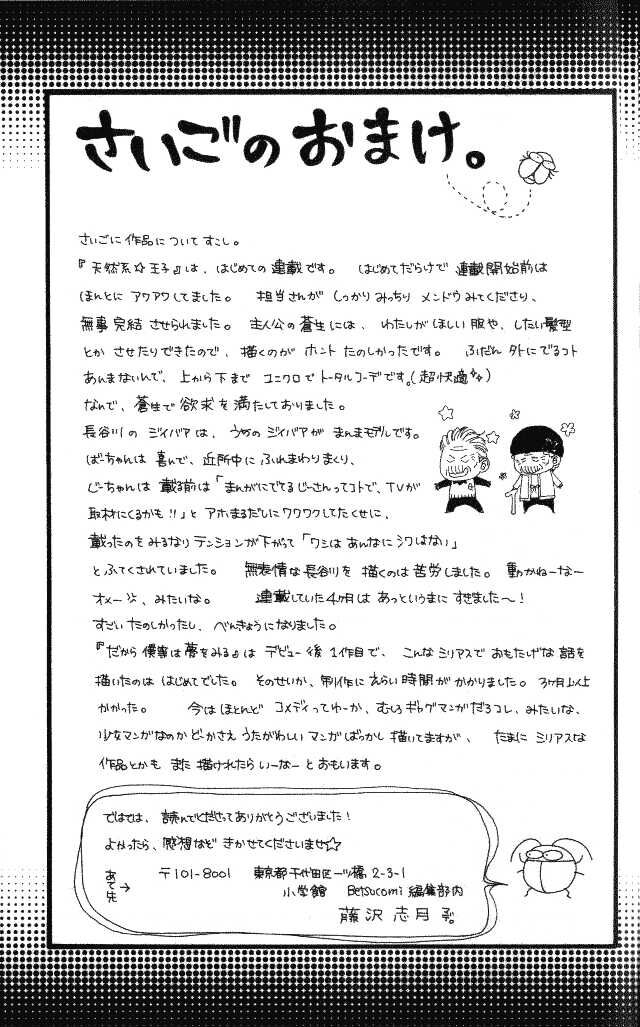 さいごの おまけ。
さいごに 作品に ついて すこし。
『天然系☆王子』は、はじめての 連載です。 はじめてだらけで 連載開始前は
ほんとに アワアワしてました。 担当さんが しっかり みっちり メンドウみてくださり、
無事 完結 させられました。 主人公の 蒼生には、 わたしが ほしい 服や、したい髪型
とか させたりできたので、描くのが ホント たのしかったです。 ふだん 外にでるコト
あんまないんで、上から下まで ユニクロで トータルコーデです。(超快適)
なんで、蒼生で 欲求を 満たしておりました。
長谷川の ジイバアは、うちのジイバアが まんまモデルです。
ばーちゃんは 喜んで、近所中に ふれまわりまくり、
じーちゃんは 載る前は「まんがにでてるじーさんってコトで、TVが
取材にくるかも!!」と アホまるだしに ワクワクしてたくせに、
載ったのを みるなり テンションが 下がって 「ワシは あんなに シワはない」
と ふてくされていました。 無表情な 長谷川を 描くのは 苦労しました。 動かねーなー
オメー、みたいな。 連載していた 4ヶ月は あっというまに すぎました〜!
すごい たのしかったし、べんきょうになりました。
『だから 僕等は 夢をみる』は デビュー後 1作目で、 こんな シリアスで おもたげな 話を
描いたのは はじめてでした。 そのせいか、制作に えらい 時間が かかりました。 3ヶ月以上
かかった。 今は ほとんど コメディってゆーか、むしろ ギャグマンガだろコレ、みたいな、
少女マンガなのか どーかさえ うたがわしい マンガばっかし 描いてますが、 たまに シリアスな
作品とかも また 描けれたら いーなーと おもいます。
ではでは、読んでくださって ありがとうございました!
よかったら、感想など きかせてくださいませ☆
あて先→
〒101-8001 東京都千代田区一ツ橋 2-3-1
小学館 Betsucomi 編集部内
藤沢志月